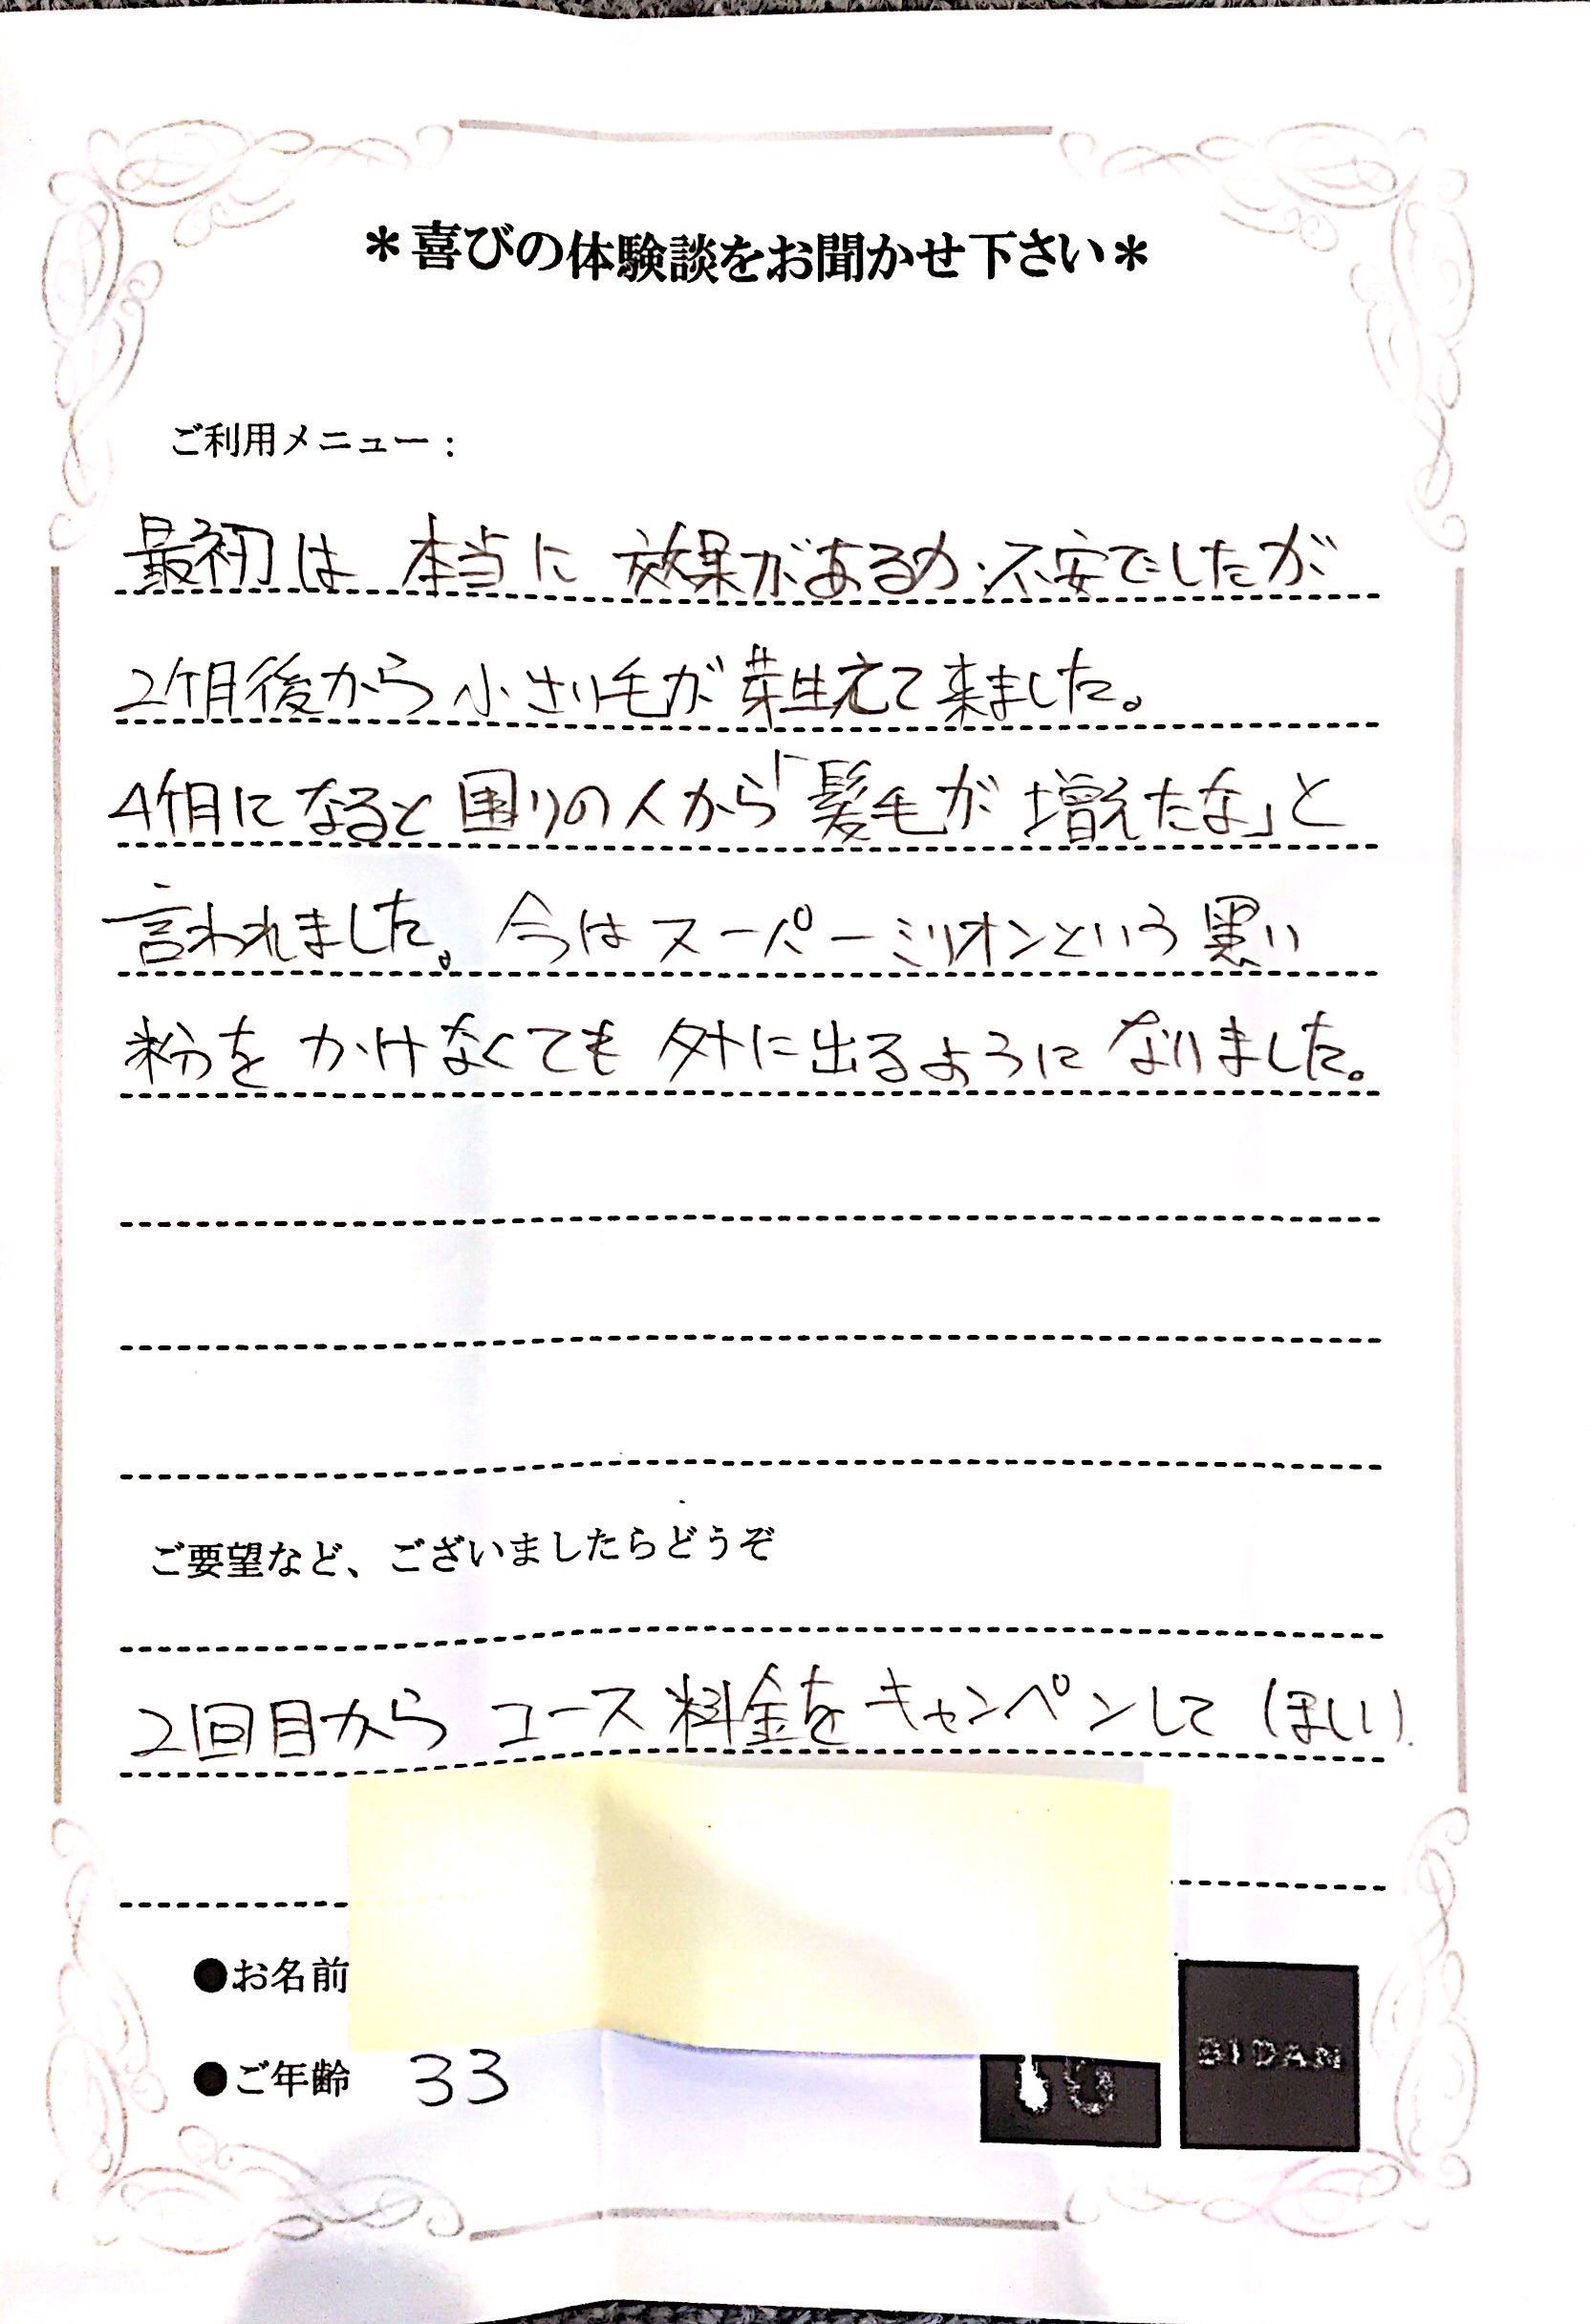 ＊喜びの体験談をお聞かせ下さい＊
ご利用メニュー：
最初は 本当に 効果があるか不安でしたが
2ケ月後から 小さい毛が 芽生えて来ました。
4ケ月になると 囲りの人から「髪毛が 増えたな」と
言われました。今はスーパーミリオンという黒い
粉を かけなくても 外に出るように なりました。
ご要望など、ございましたらどうぞ
2回目から コース料金を キャンペンして ほしい.
●お名前
●ご年齢 33
BIDAN